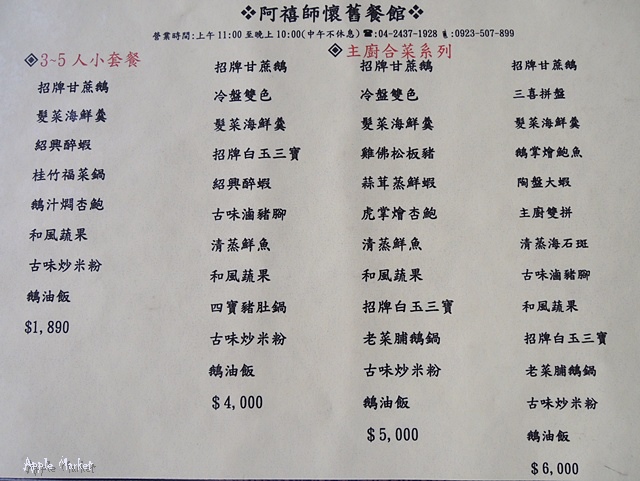 ❖阿禧師懷舊餐館❖
營業時間:上午11:00至晚上10:00(中午不休息) ☎:04-2437-1928 :0923-507-899
◈3~5人小套餐
招牌甘蔗鵝
髮菜海鮮羹
紹興醉蝦
桂竹福菜鍋
鵝汁燜杏鮑
和風蔬果
古味炒米粉
鵝油飯
$1,890
◈主廚合菜系列
招牌甘蔗鵝
冷盤雙色
髮菜海鮮羹
招牌白玉三寶
紹興醉蝦
古味滷豬腳
清蒸鮮魚
和風蔬果
四寶豬肚鍋
古味炒米粉
鵝油飯
$4,000
招牌甘蔗鵝
冷盤雙色
髮菜海鮮羹
雞佛松板豬
蒜茸蒸鮮蝦
虎掌燴杏鮑
清蒸鮮魚
和風蔬果
招牌白玉三寶
老菜脯鵝鍋
古味炒米粉
鵝油飯
$5,000
招牌甘蔗鵝
三喜拼盤
髮菜海鮮羹
鵝掌燴鮑魚
陶盤大蝦
主廚雙拼
清蒸海石斑
古味滷豬腳
和風蔬果
招牌白玉三寶
老菜脯鵝鍋
古味炒米粉
鵝油飯
$6,000
Apple Market